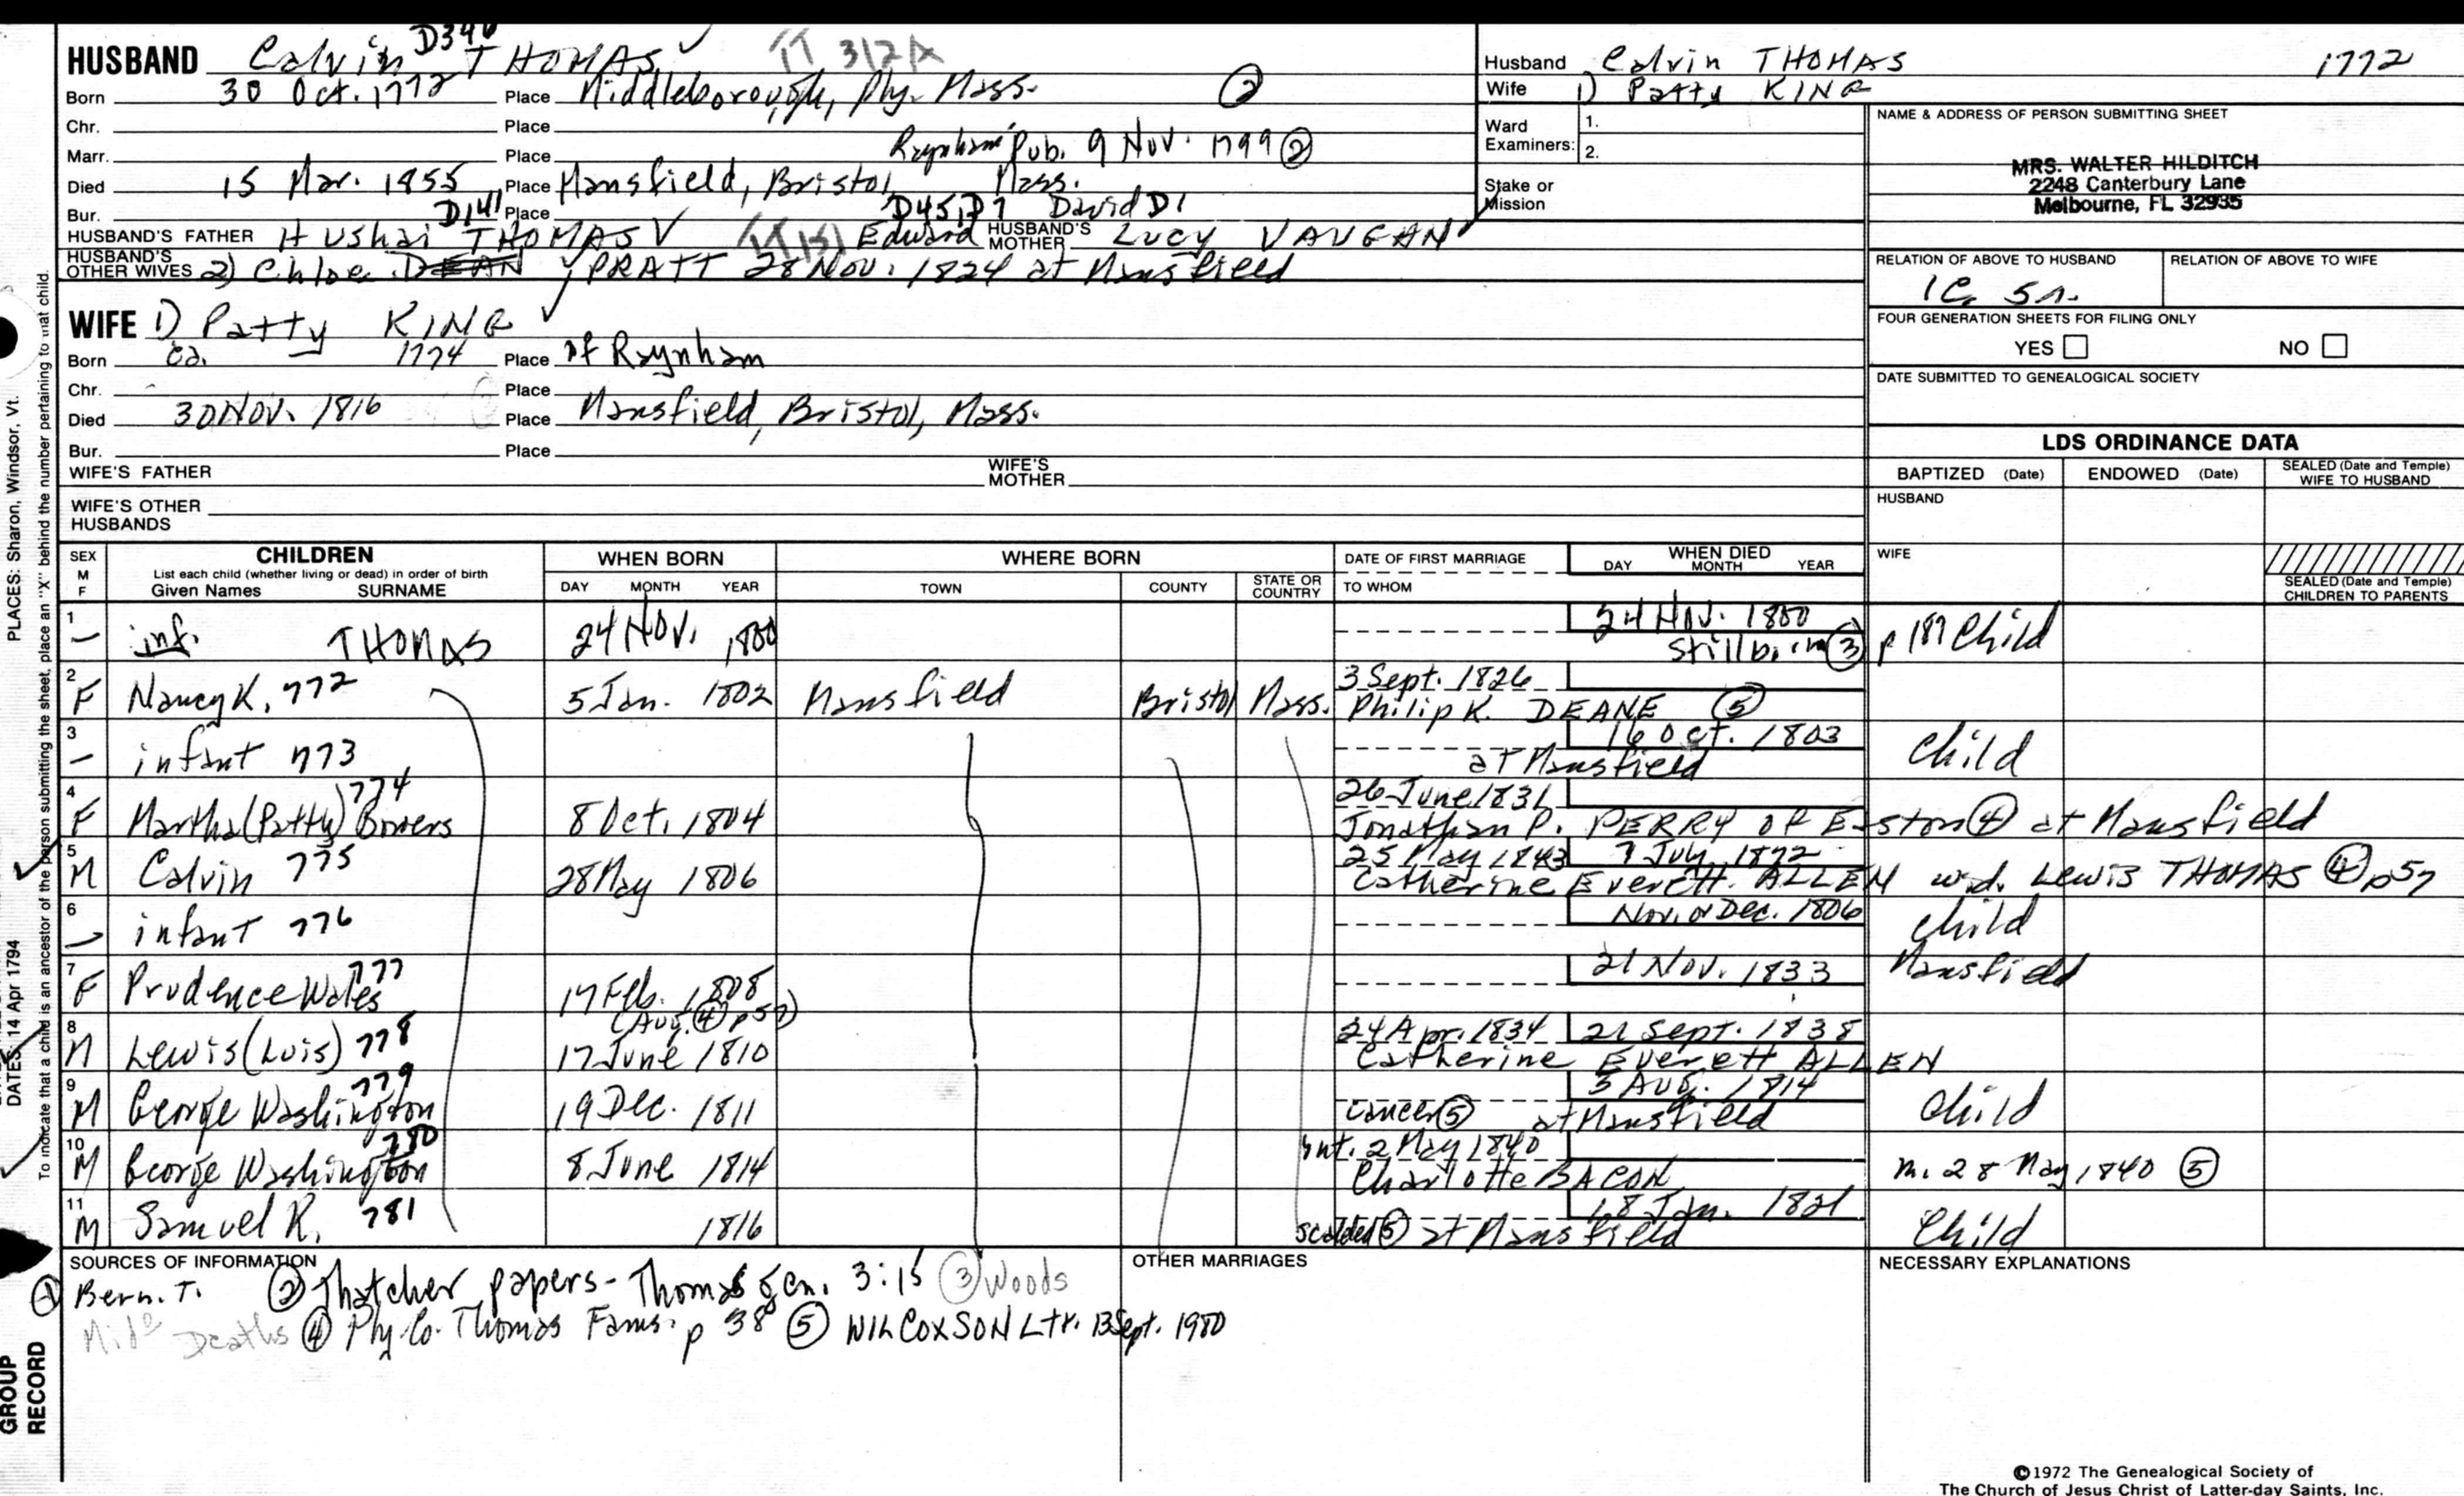 HUSBAND Calvin D346 THOMAS ✓ TT 312A
Born 30 Oct. 1772 Place Middleborough, Ply. Mass. ②
Chr. Place
Marr. Place Raynham Pub. 9 Nov. 1799 ②
Died 15 Mar. 1855 Place Mansfield, Bristol, Mass.
Bur. D141 Place D45, D7 David D1
HUSBAND'S FATHER Hushai THOMAS ✓ TT151 Edward HUSBAND'S MOTHER Lucy VAUGHAN ✓
HUSBAND'S OTHER WIVES 2) Chloe DEAN PRATT 28 Nov. 1824 at Mansfield
WIFE 1) Patty KING ✓
Born ca. 1774 Place of Raynham
Chr. Place
Died 30 Nov. 1816 Place Mansfield, Bristol, Mass.
Bur. Place
WIFE'S FATHER WIFE'S MOTHER
WIFE'S OTHER HUSBANDS
Husband Calvin THOMAS 1772
Wife 1) Patty KING
Ward Examiners: 1.
2.
Stake or Mission
NAME & ADDRESS OF PERSON SUBMITTING SHEET
MRS. WALTER HILDITCH
2248 Canterbury Lane
Melbourne, FL 32935
RELATION OF ABOVE TO HUSBAND RELATION OF ABOVE TO WIFE
1C 5r.
FOUR GENERATION SHEETS FOR FILING ONLY
YES NO
DATE SUBMITTED TO GENEALOGICAL SOCIETY
LDS ORDINANCE DATA
BAPTIZED (Date) ENDOWED (Date) SEALED (Date and Temple) WIFE TO HUSBAND
HUSBAND
WIFE
SEALED (Date and Temple) CHILDREN TO PARENTS
SEX M F CHILDREN WHEN BORN WHERE BORN DATE OF FIRST MARRIAGE WHEN DIED
List each child (whether living or dead) in order of birth
Given Names SURNAME DAY MONTH YEAR TOWN COUNTY STATE OR COUNTRY TO WHOM DAY MONTH YEAR
1 – inf. THOMAS 24 Nov. 1800 24 Nov. 1800
Stillborn ③ p 187 Child
2 F Nancy K. 772 5 Jan. 1802 Mansfield Bristol Mass. 3 Sept. 1826
Philip K. DEANE ⑤
3 – infant 773 16 Oct. 1803
at Mansfield Child
4 F Martha (Patty) Bowers 774 8 Oct. 1804 26 June 1831
Jonathan P. PERRY of Easton ④ at Mansfield
5 M Calvin 775 28 May 1806 25 May 1843 7 July 1872
Catherine Everett ALLEN wid. Lewis THOMAS ④ p57
6 – infant 776 Nov. or Dec. 1806 Child
7 F Prudence Wales 777 17 Feb. 1808 21 Nov. 1833 Mansfield
(Aug. ④ p57)
8 M Lewis (Luis) 778 17 June 1810 24 Apr. 1834 21 Sept. 1838
Catherine Everett ALLEN
9 M George Washington 779 19 Dec. 1811 5 Aug. 1814
cancer ⑤ at Mansfield Child
10 M George Washington 780 8 June 1814 Int. 2 May 1840
Charlotte BACON m. 28 May 1840 ⑤
11 M Samuel R. 781 1816 18 Jan. 1821
scalded ⑤ at Mansfield Child
SOURCES OF INFORMATION OTHER MARRIAGES NECESSARY EXPLANATIONS
① Bern. T. ② Thatcher papers - Thomas Gen. 3:15 ③ Woods
Mid° Deaths ④ Ply. Co. Thomas Fams. p 38 ⑤ WILCOXSON Ltr. 13 Sept. 1980
©1972 The Genealogical Society of
The Church of Jesus Christ of Latter-day Saints, Inc.
PLACES: Sharon, Windsor, Vt.
DATES: 14 Apr 1794
To indicate that a child is an ancestor of the person submitting the sheet, place an "X" behind the number pertaining to that child.
GROUP
RECORD